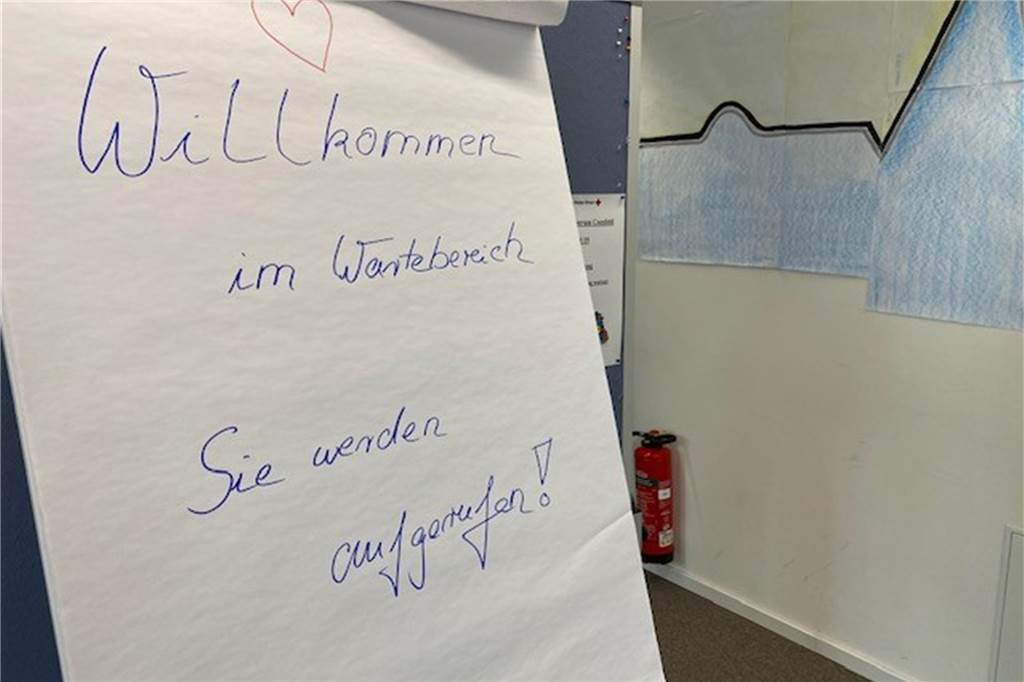 Willkommen
im Wartebereich
Sie werden
aufgerufen!